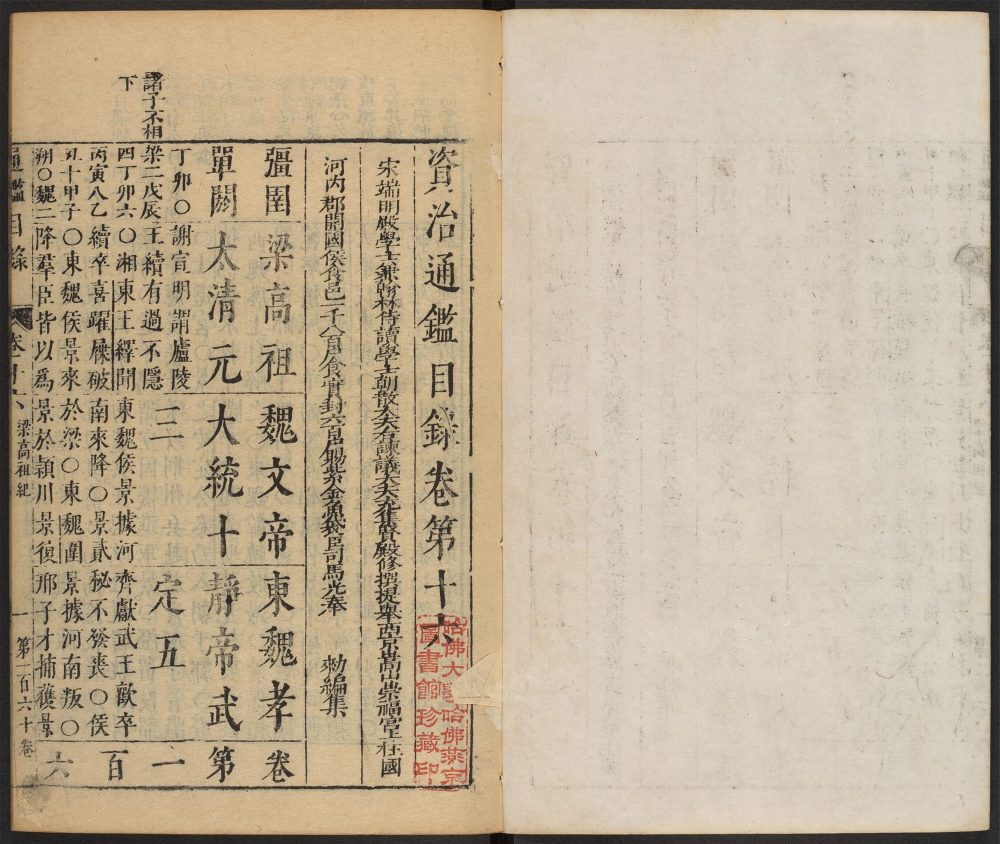 資治通鑑目錄卷第十六
宋端明殿學士兼翰林侍讀學士朝散大夫右諫議大夫充集賢殿修撰提舉西京嵩山崇福宮上柱國
河內郡開國侯食邑一千八百戶食實封六百戶賜紫金魚袋臣司馬光奉 勑編集
彊圉 梁高祖 魏文帝 東魏孝 卷
單閼 太清元 大統十 靜帝武 第
三 定五 一
丁卯〇謝宣明謂廬陵
諸子不相
梁二戊辰王續有過不隱
下
四丁卯六〇湘東王繹聞 東魏侯景據河齊獻武王歡卒 百
丙寅八乙續卒喜躍屧破 南來降〇景貳秘不發喪〇侯
丑十甲子〇東魏侯景來 於梁〇東魏圍景據河南叛〇 六
朔〇魏二降羣臣皆以為 景於潁川景復 邢子才捕獲景
通鑑目錄 卷十六 梁高祖紀 一 第一百六十卷
哈佛大
哈佛燕京
圖書館珍藏印